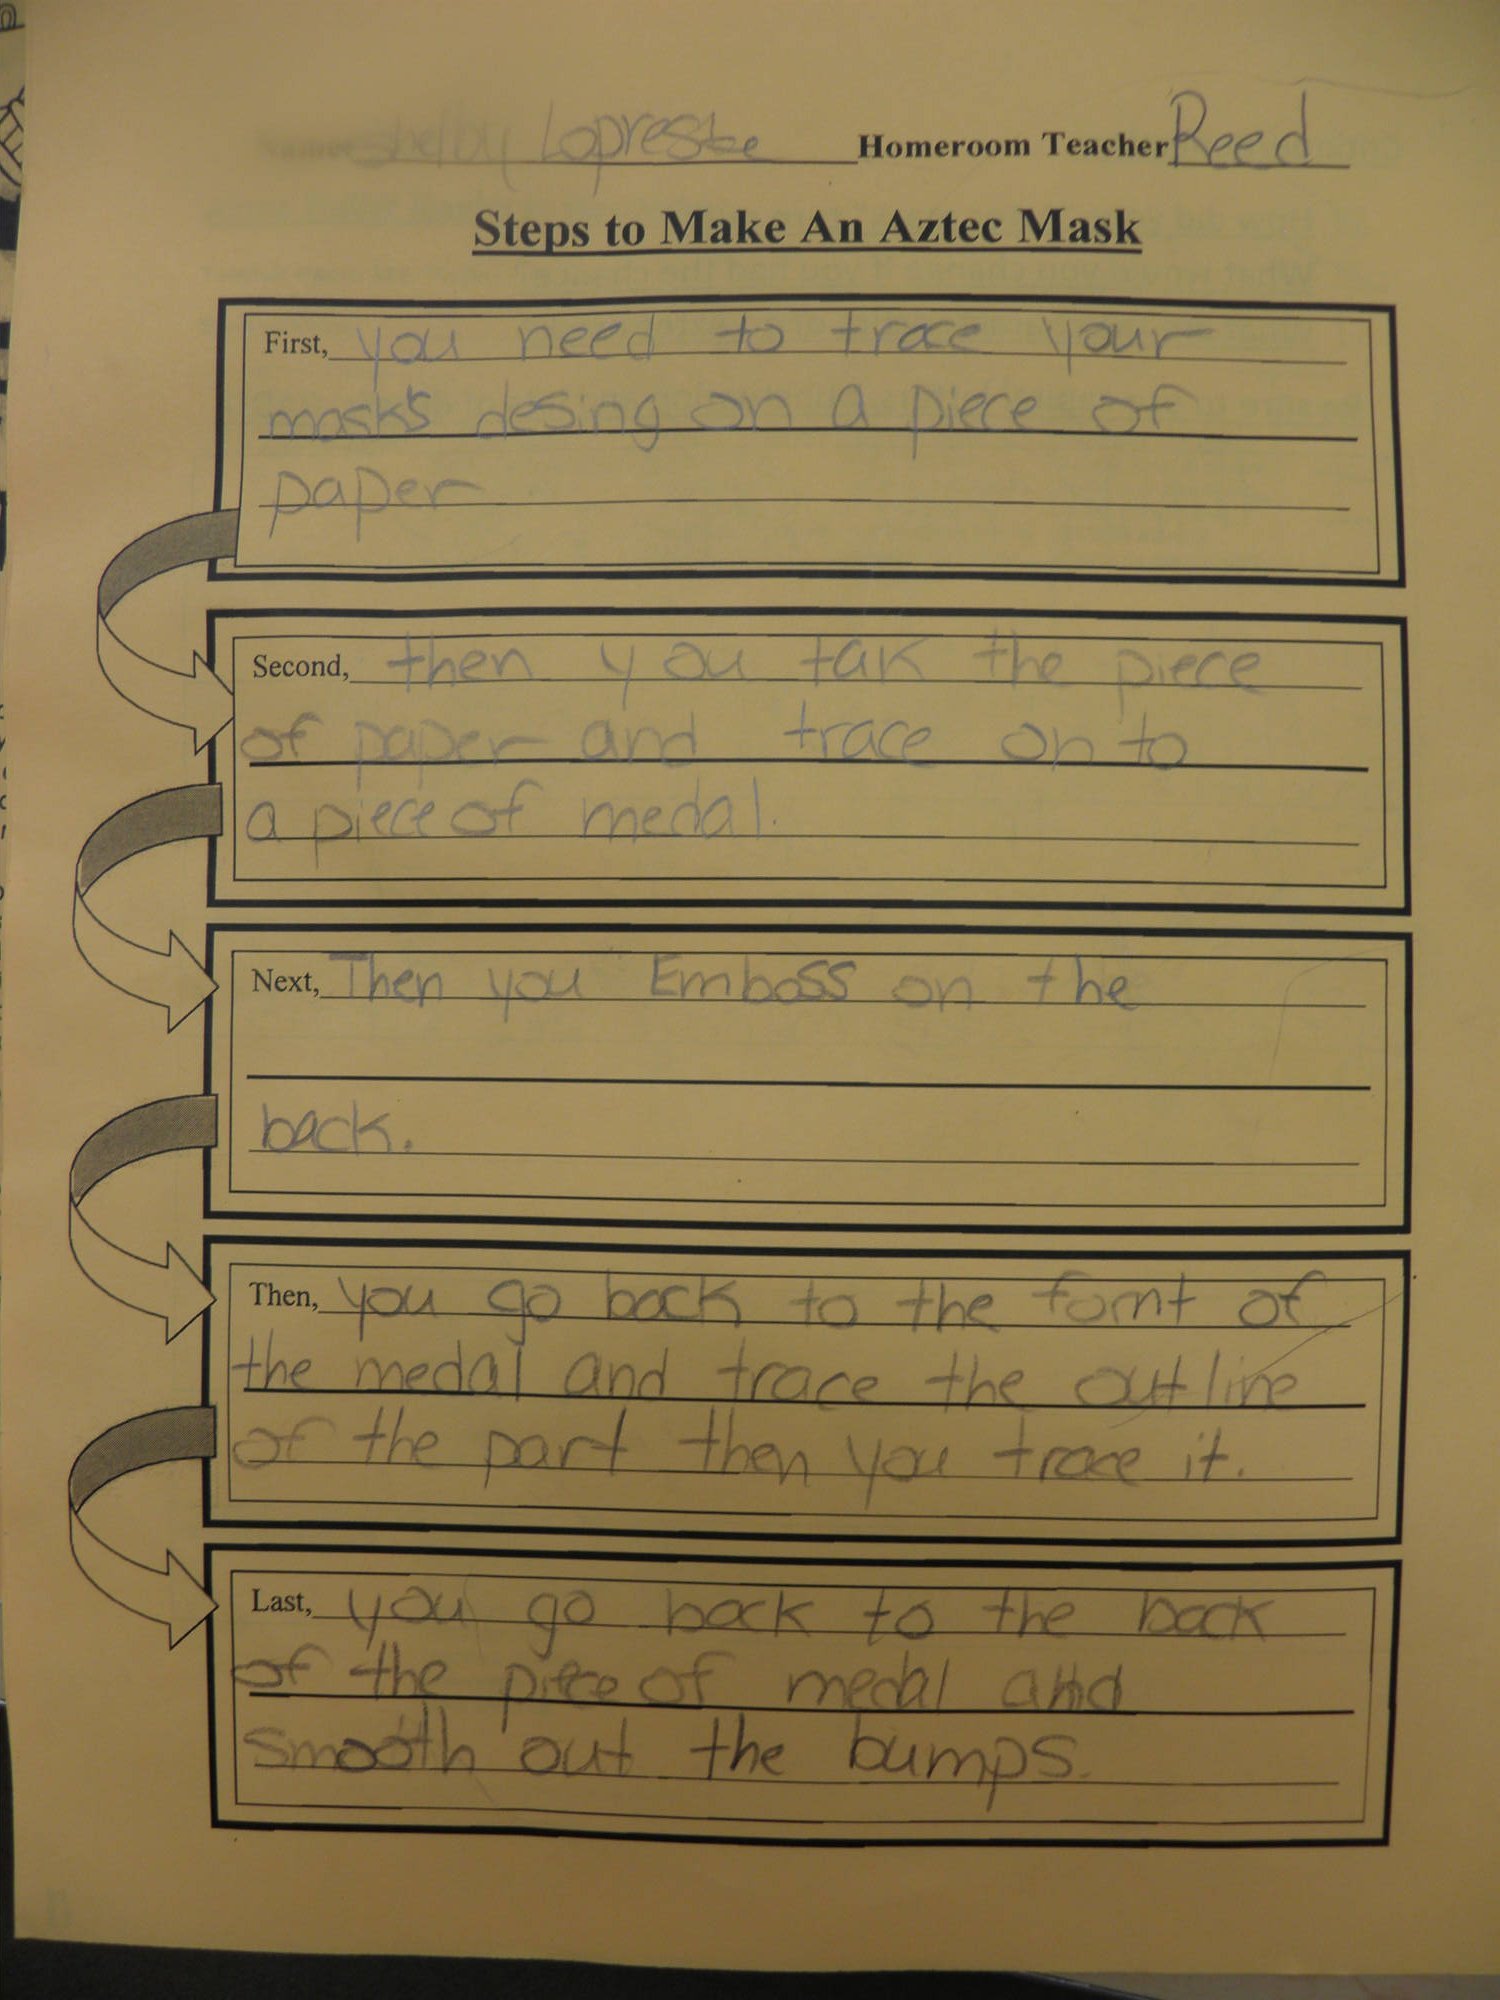 Name: Shelby Lopreste Homeroom Teacher Reed
Steps to Make An Aztec Mask
First, you need to trace your
mask's desing on a piece of
paper
Second, then you tak the piece
of paper and trace on to
a piece of medal.
Next, Then you Emboss on the
back.
Then, you go back to the fornt of
the medal and trace the outline
of the part then you trace it.
Last, you go back to the back
of the piece of medal and
smooth out the bumps.